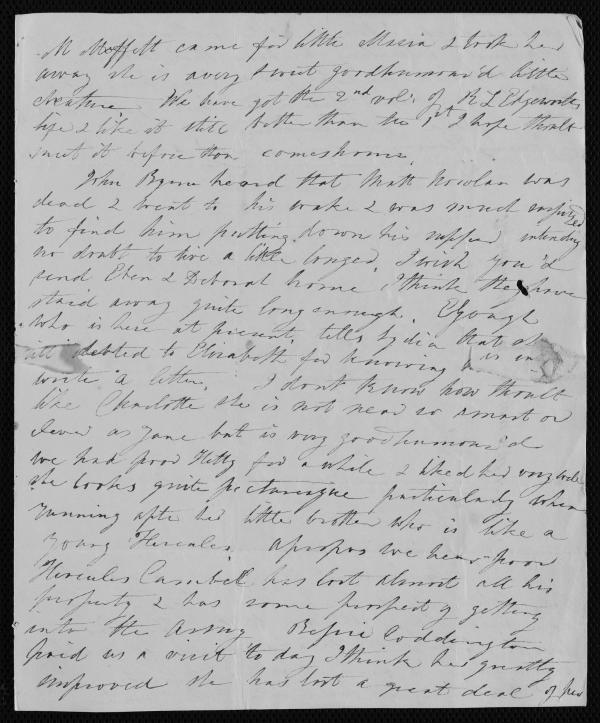 M Moffett came for little Maria & took her
away she is a very sweet goodhumour'd little
creature We have got the 2nd vol: of R L Edgeworths
life & like it still better than the 1st I hope thoult
suit it before thou comes home.
John Byrne heard that Matt Nowlan was
dead & went to his wake & was much surprized
to find him putting down his supper intending
no doubt to live a little longer. I wish you'd
send Eben & Deborah home I think they have
staid away quite long enough.
who is here at present, tells Lydia that
indebted to Elizabeth for knowing is in
write a letter. I dont know how thoult
like Charlotte she is not near so smart or
clever as Jane but is very goodhumour'd
we had poor Hetty for a while & liked her very well
she looks quite picturesque particularly when
running after her little brother who is like a
young Hercules. Apropos we hear poor
Hercules Cambell has lost almost all his
property & has some prospect of getting
into the Army Bessie Coddington
paid us a visit to day I think her greatly
improved she has lost a great deal of her